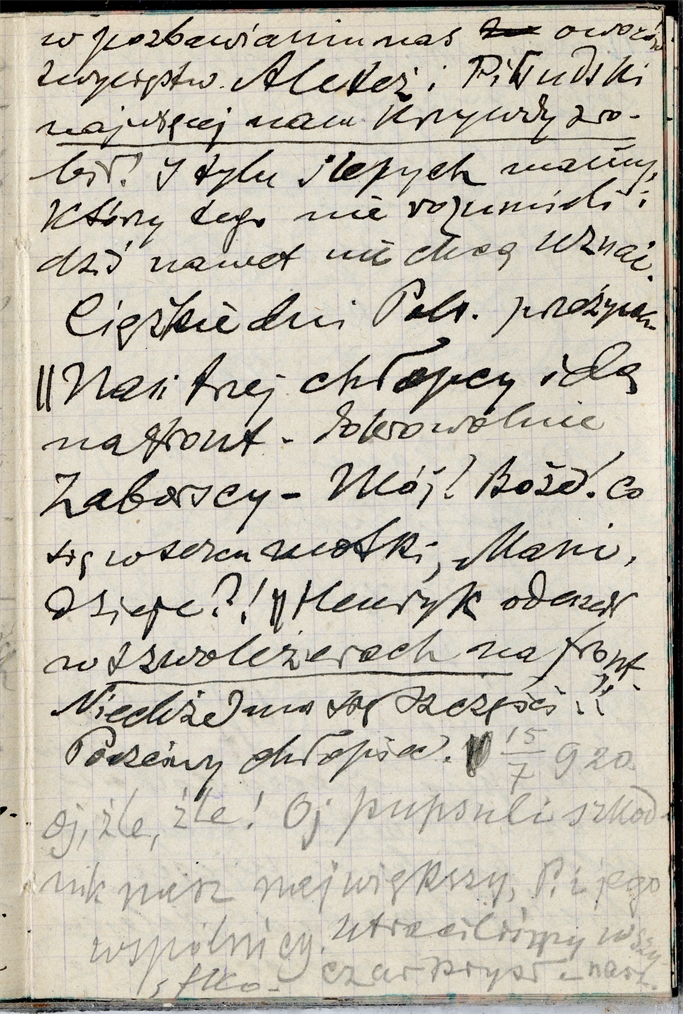 w pozbawianiu nas owoców
zwycięstw. Aleksej i Piłsudski
najwięcej nam krzywdy zro-
bił! I tylu ślepych mamy,
którzy tego nie rozumieli i
dziś nawet nie chcą uznać.
Ciężkie dni Pols. przeżywa
Nasi trzej chłopcy idą
na front - dobrowolnie
Zaborscy - Mój! Boże! co
się w sercu matki, Mani,
dzieje?! Henryk odszedł
w szwoleżerach na front.
Niechże Ono się szczęści!!
Poczciwy chłopiec. 15/7 920
Oj, źle, źle! Oj szkod-
nik nasz największy, P. i jego
wspólnicy. Utraciliśmy wszy
stko -